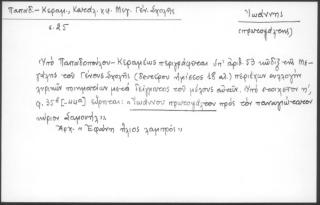 Παπαδ.- Κεραμ., Κατάλ. χφ. Μεγ. Γέν. Σχολῆς
σ. 25
Ἰωάννης
(πρωτοψάλτης)
Ὑπὸ Παπαδοπούλου - Κεραμέως περιγράφεται ὑπ' ἀριθ. 53 κῶδιξ τῆς Με-
γάλης τοῦ Γένους Σχολῆς (δευτέρου ἡμίσεος 18 αἰ.) περιέχων συλλογὴν
λυρικῶν ποιημάτων μετὰ δείγματος τοῦ μέλους αὐτῶν. Ὑπὸ στοιχεῖον η',
φ. 35β [-44α] εὕρηται: «Ἰωάννου πρωτοψάλτου πρὸς τὸν παναγιώτατον
κύριον Σαμουήλ».
Ἀρχ. «Ἐφάνη ἥλιος λαμπρός»